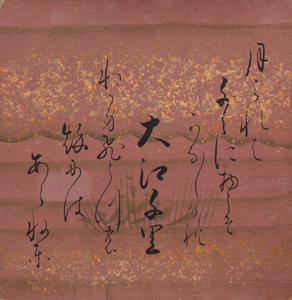 月みれは
千々に物こそ
かなしけれ
大江千里
わか身ひとつの
秋には
あらねと